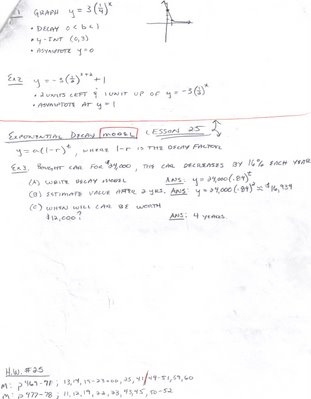 Ex1 GRAPH y = 3(1/4)^x
• DECAY 0 < b < 1
• y-INT (0,3)
• ASYMPTOTE y = 0
Ex2 y = -3(1/2)^x+2 + 1
• 2 UNITS LEFT & 1 UNIT UP OF y = -3(1/2)^x
• ASYMPTOTE AT y = 1
EXPONENTIAL DECAY MODEL LESSON 25
y = a(1-r)^t, WHERE 1-r IS THE DECAY FACTOR
Ex3 BOUGHT CAR FOR $24,000, THE CAR DECREASES BY 16% EACH YEAR
(A) WRITE DECAY MODEL ANS: y = 24,000(.84)^t
(B) ESTIMATE VALUE AFTER 2 YRS. ANS: y = 24,000(.84)^2 ≈ $16,934
(C) WHEN WILL CAR BE WORTH
$12,000? ANS: 4 YEARS
H.W. #25
M: p 469-70; 13,14, 41/49-51,59,60
M: p 477-78; 11,12,19,22,23,43,45,50-52